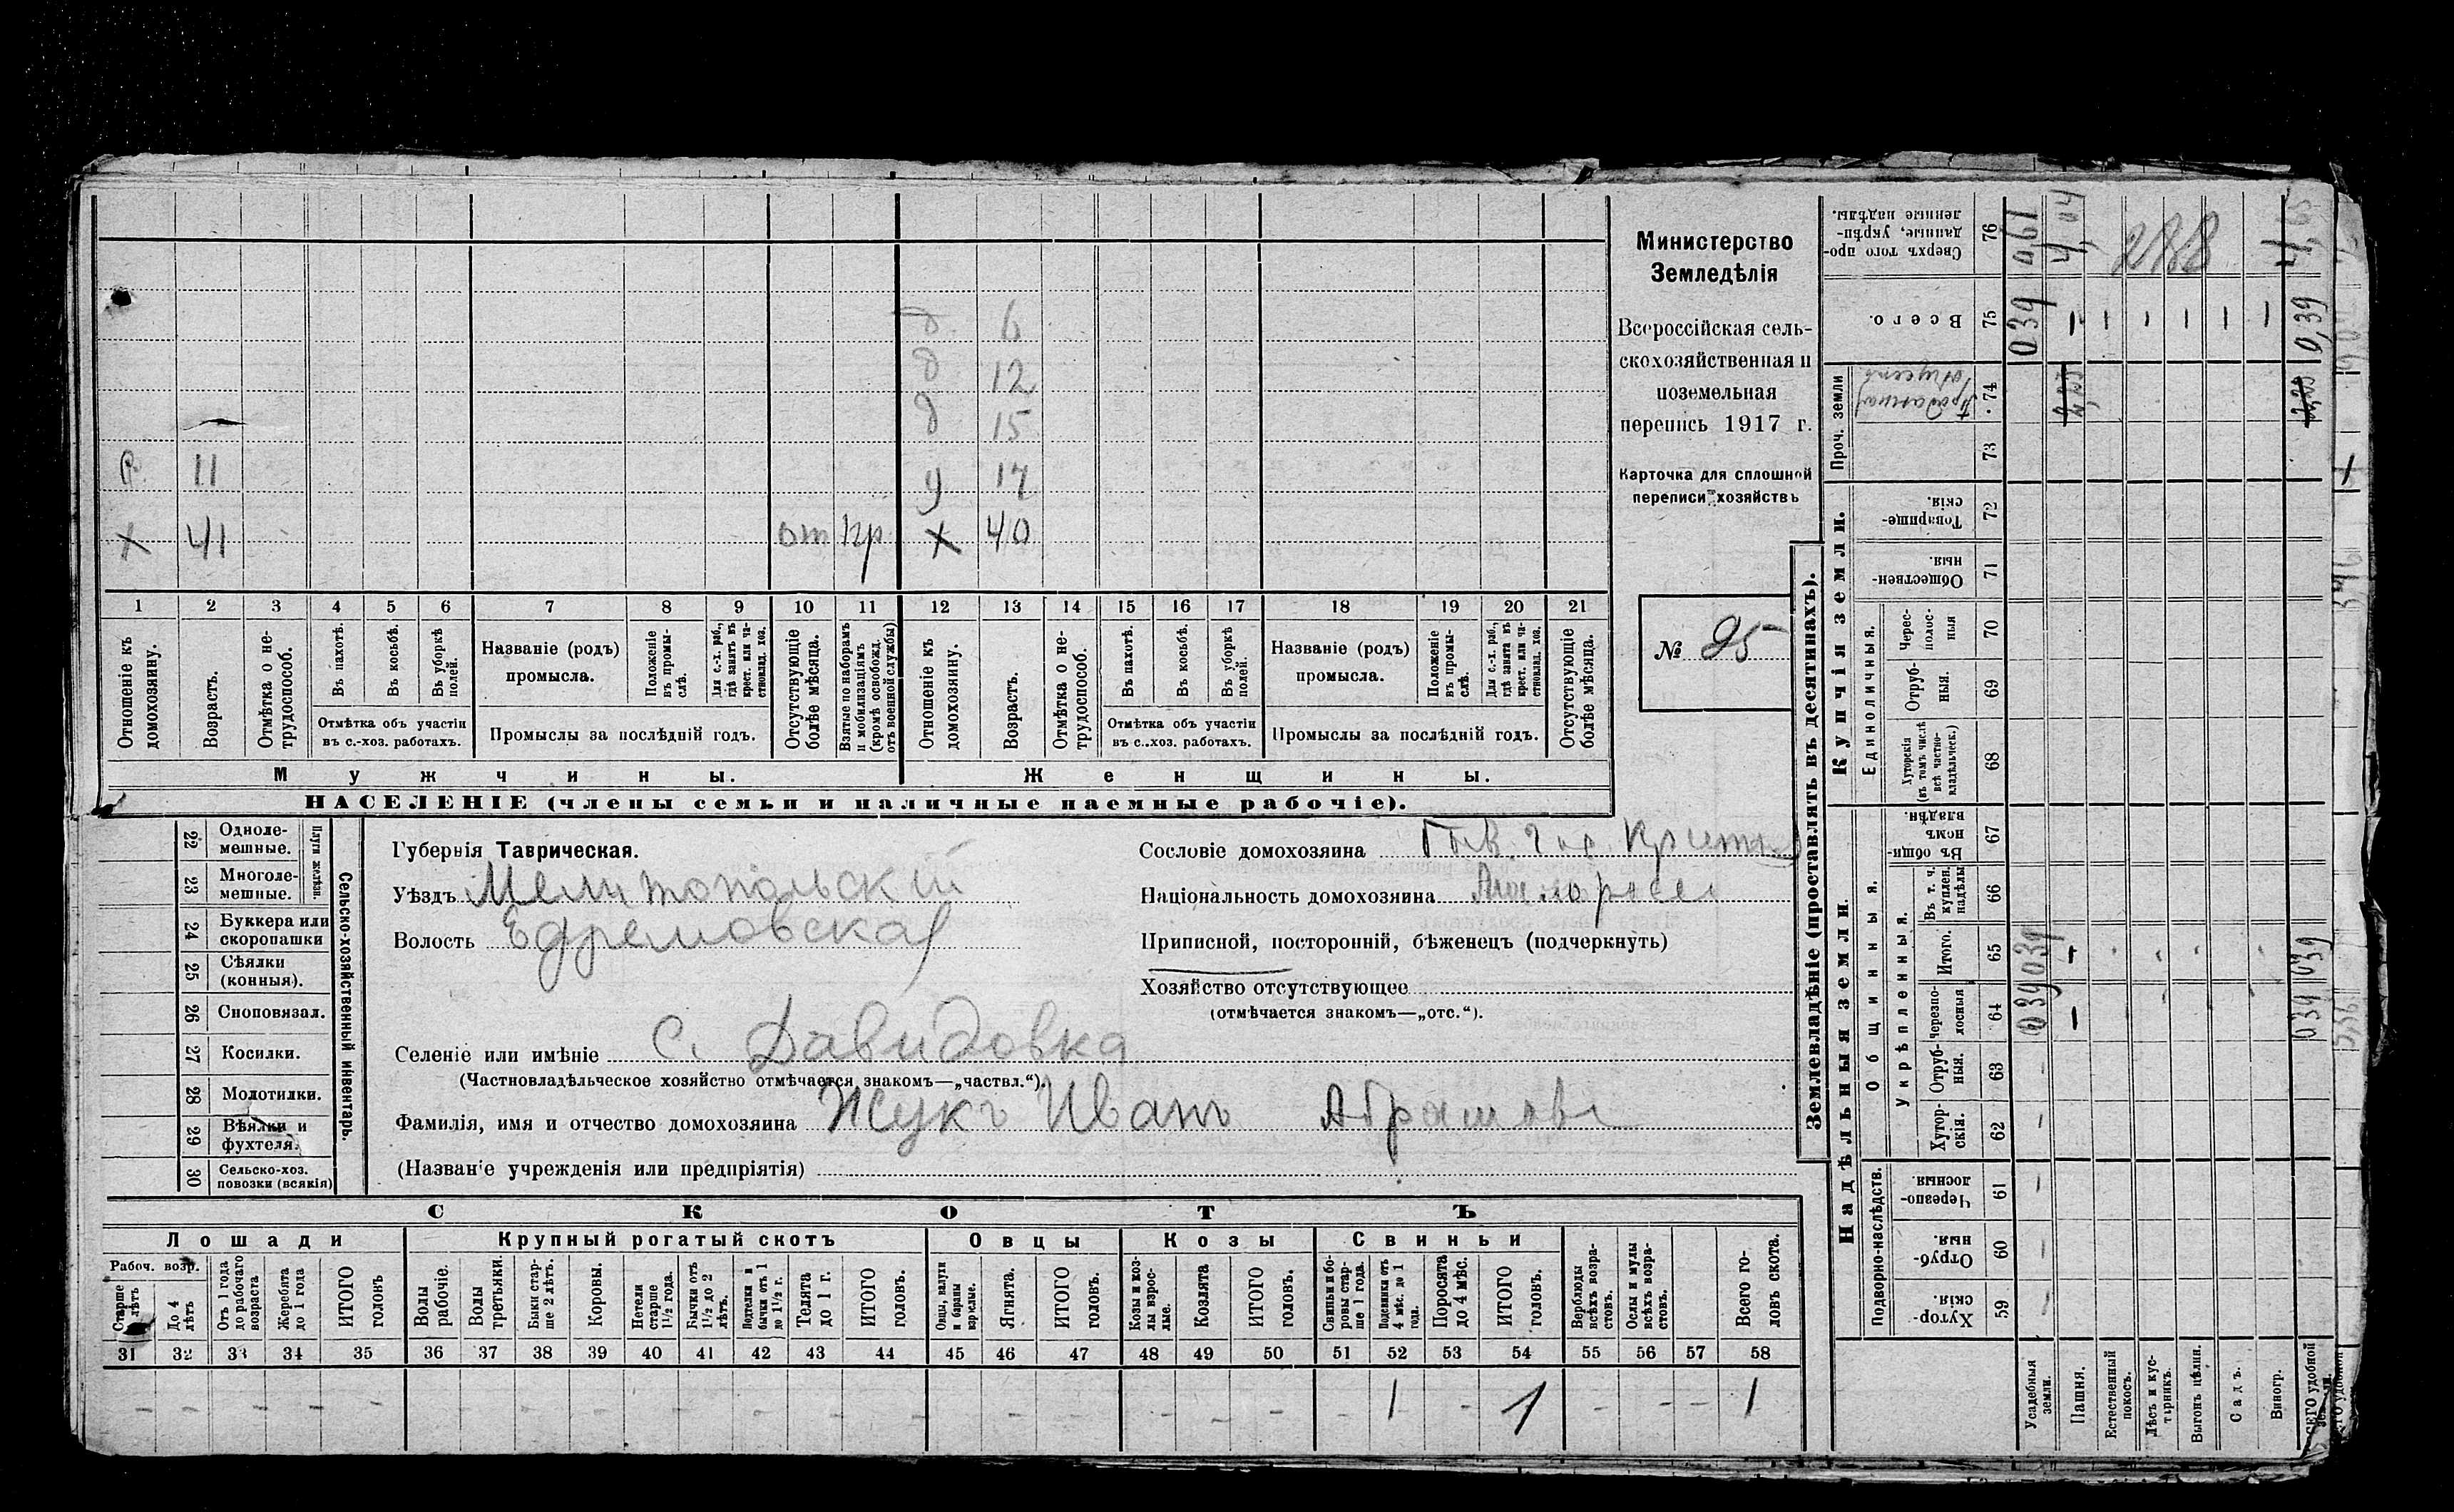 д 6
д 12
д 15
с. 11 д 17
х 41 от пр х 40
1 2 3 4 5 6 7 8 9 10 11 12 13 14 15 16 17 18 19 20 21
Отношеніе къ домохозяину.
Возрастъ.
Отмѣтка о не-трудоспособ.
Въ пахотѣ.
Въ косьбѣ.
Въ уборкѣ полей.
Отмѣтка объ участіи
въ с.-хоз. работахъ.
Названіе (родъ)
промысла.
Положеніе въ промы-слѣ.
Для с.-х. раб., гдѣ занятъ въ крест. или ча-стновлад. хоз.
Промыслы за послѣдній годъ.
Отсутствующіе болѣе мѣсяца.
Взятые по наборамъ и мобилизаціямъ (кромѣ освобожд. отъ военной службы)
Отношеніе къ домохозяину.
Возрастъ.
Отмѣтка о не-трудоспособ.
Въ пахотѣ.
Въ косьбѣ.
Въ уборкѣ полей.
Отмѣтка объ участіи
въ с.-хоз. работахъ.
Названіе (родъ)
промысла.
Положеніе въ промы-слѣ.
Для с.-х. раб., гдѣ занята въ крест. или ча-стновлад. хоз.
Промыслы за послѣдній годъ.
Отсутствующіе болѣе мѣсяца.
Мужчины. Женщины.
НАСЕЛЕНІЕ (члены семьи и наличные наемные рабочіе).
Министерство
Земледѣлія
Всероссійская сель-
скохозяйственная и
поземельная
перепись 1917 г.
Карточка для сплошной
переписи хозяйствъ
№ 95
Сельско-хозяйственный инвентарь.
Плуги желѣзн.
22 Одноле-мешные.
23 Многоле-мешные.
24 Буккера или скоропашки
25 Сѣялки (конныя).
26 Сноповязал.
27 Косилки.
28 Молотилки.
29 Вѣялки и фухтеля.
30 Сельско-хоз. повозки (всякія)
Губернія Таврическая.
Уѣздъ Мелитопольскій
Волость Ефремовская
Сословіе домохозяина
Національность домохозяина Малоросс
Приписной, посторонній, бѣженецъ (подчеркнуть)
Хозяйство отсутствующее
(отмѣчается знакомъ—„отс.“).
Селеніе или имѣніе с. Давидовка
(Частновладѣльческое хозяйство отмѣчается знакомъ—„частвл.“).
Фамилія, имя и отчество домохозяина Жукъ Иванъ Абрамов
(Названіе учрежденія или предпріятія)
СКОТЪ
Лошади Крупный рогатый скотъ Овцы Козы Свиньи
Рабоч. возр.
Старше 4 лѣтъ
До 4 лѣтъ
Отъ 1 года до рабочаго возраста
Жеребята до 1 года
ИТОГО головъ
Волы рабочіе.
Волы третьяки.
Быки стар-ше 2 лѣтъ.
Коровы.
Нетели старше 1½ года.
Бычки отъ 1½ до 2 лѣтъ.
Подтелки и бычки отъ 1 до 1½ г.
Телята до 1 г.
ИТОГО головъ.
Овцы, валухи и бараны взрослые.
Ягнята.
ИТОГО головъ.
Козы и коз-лы взрос-лые.
Козлята
ИТОГО головъ.
Свиньи и бо-ровы стар-ше 1 года.
Подсвинки отъ 4 мѣс. до 1 года.
Поросята до 4 мѣс.
ИТОГО головъ.
Верблюды всѣхъ возра-стовъ.
Ослы и мулы всѣхъ возра-стовъ.
Всего го-ловъ скота.
31 32 33 34 35 36 37 38 39 40 41 42 43 44 45 46 47 48 49 50 51 52 53 54 55 56 57 58
- - - - - - - - - - - - - - - - - - - - - 1 - 1 - - - 1
Землевладѣніе (проставлять въ десятинахъ).
Надѣльныя земли. Купчія земли. Проч. земли
Подворно-наслѣдств. Общинныя. Единоличныя.
Укрѣпленныя.
Хутор-скія 59
Отруб-ныя. 60
Черезпо-лосныя. 61
Хутор-скія. 62
Отруб-ныя. 63
Черезпо-лосныя 64
Итого. 65
Въ т. ч. куплен. надѣлы 66
Въ общин-номъ владѣн. 67
Хуторскія (въ томъ числѣ всѣ частно-владѣльческ.) 68
Отруб-ныя. 69
Черес-полос-ныя 70
Обществен-ныя 71
Товарище-скія. 72
73
74
Всего. 75
Сверхъ того про-данные, укрѣп-ленные надѣлы. 76
Усадебныя земли. 039 039 039
Пашня. 4,04
Естественный покосъ.
Лѣсъ и кус-тарникъ.
Выгонъ цѣлин.
Садъ.
Виногр.
039 039 0,39
288